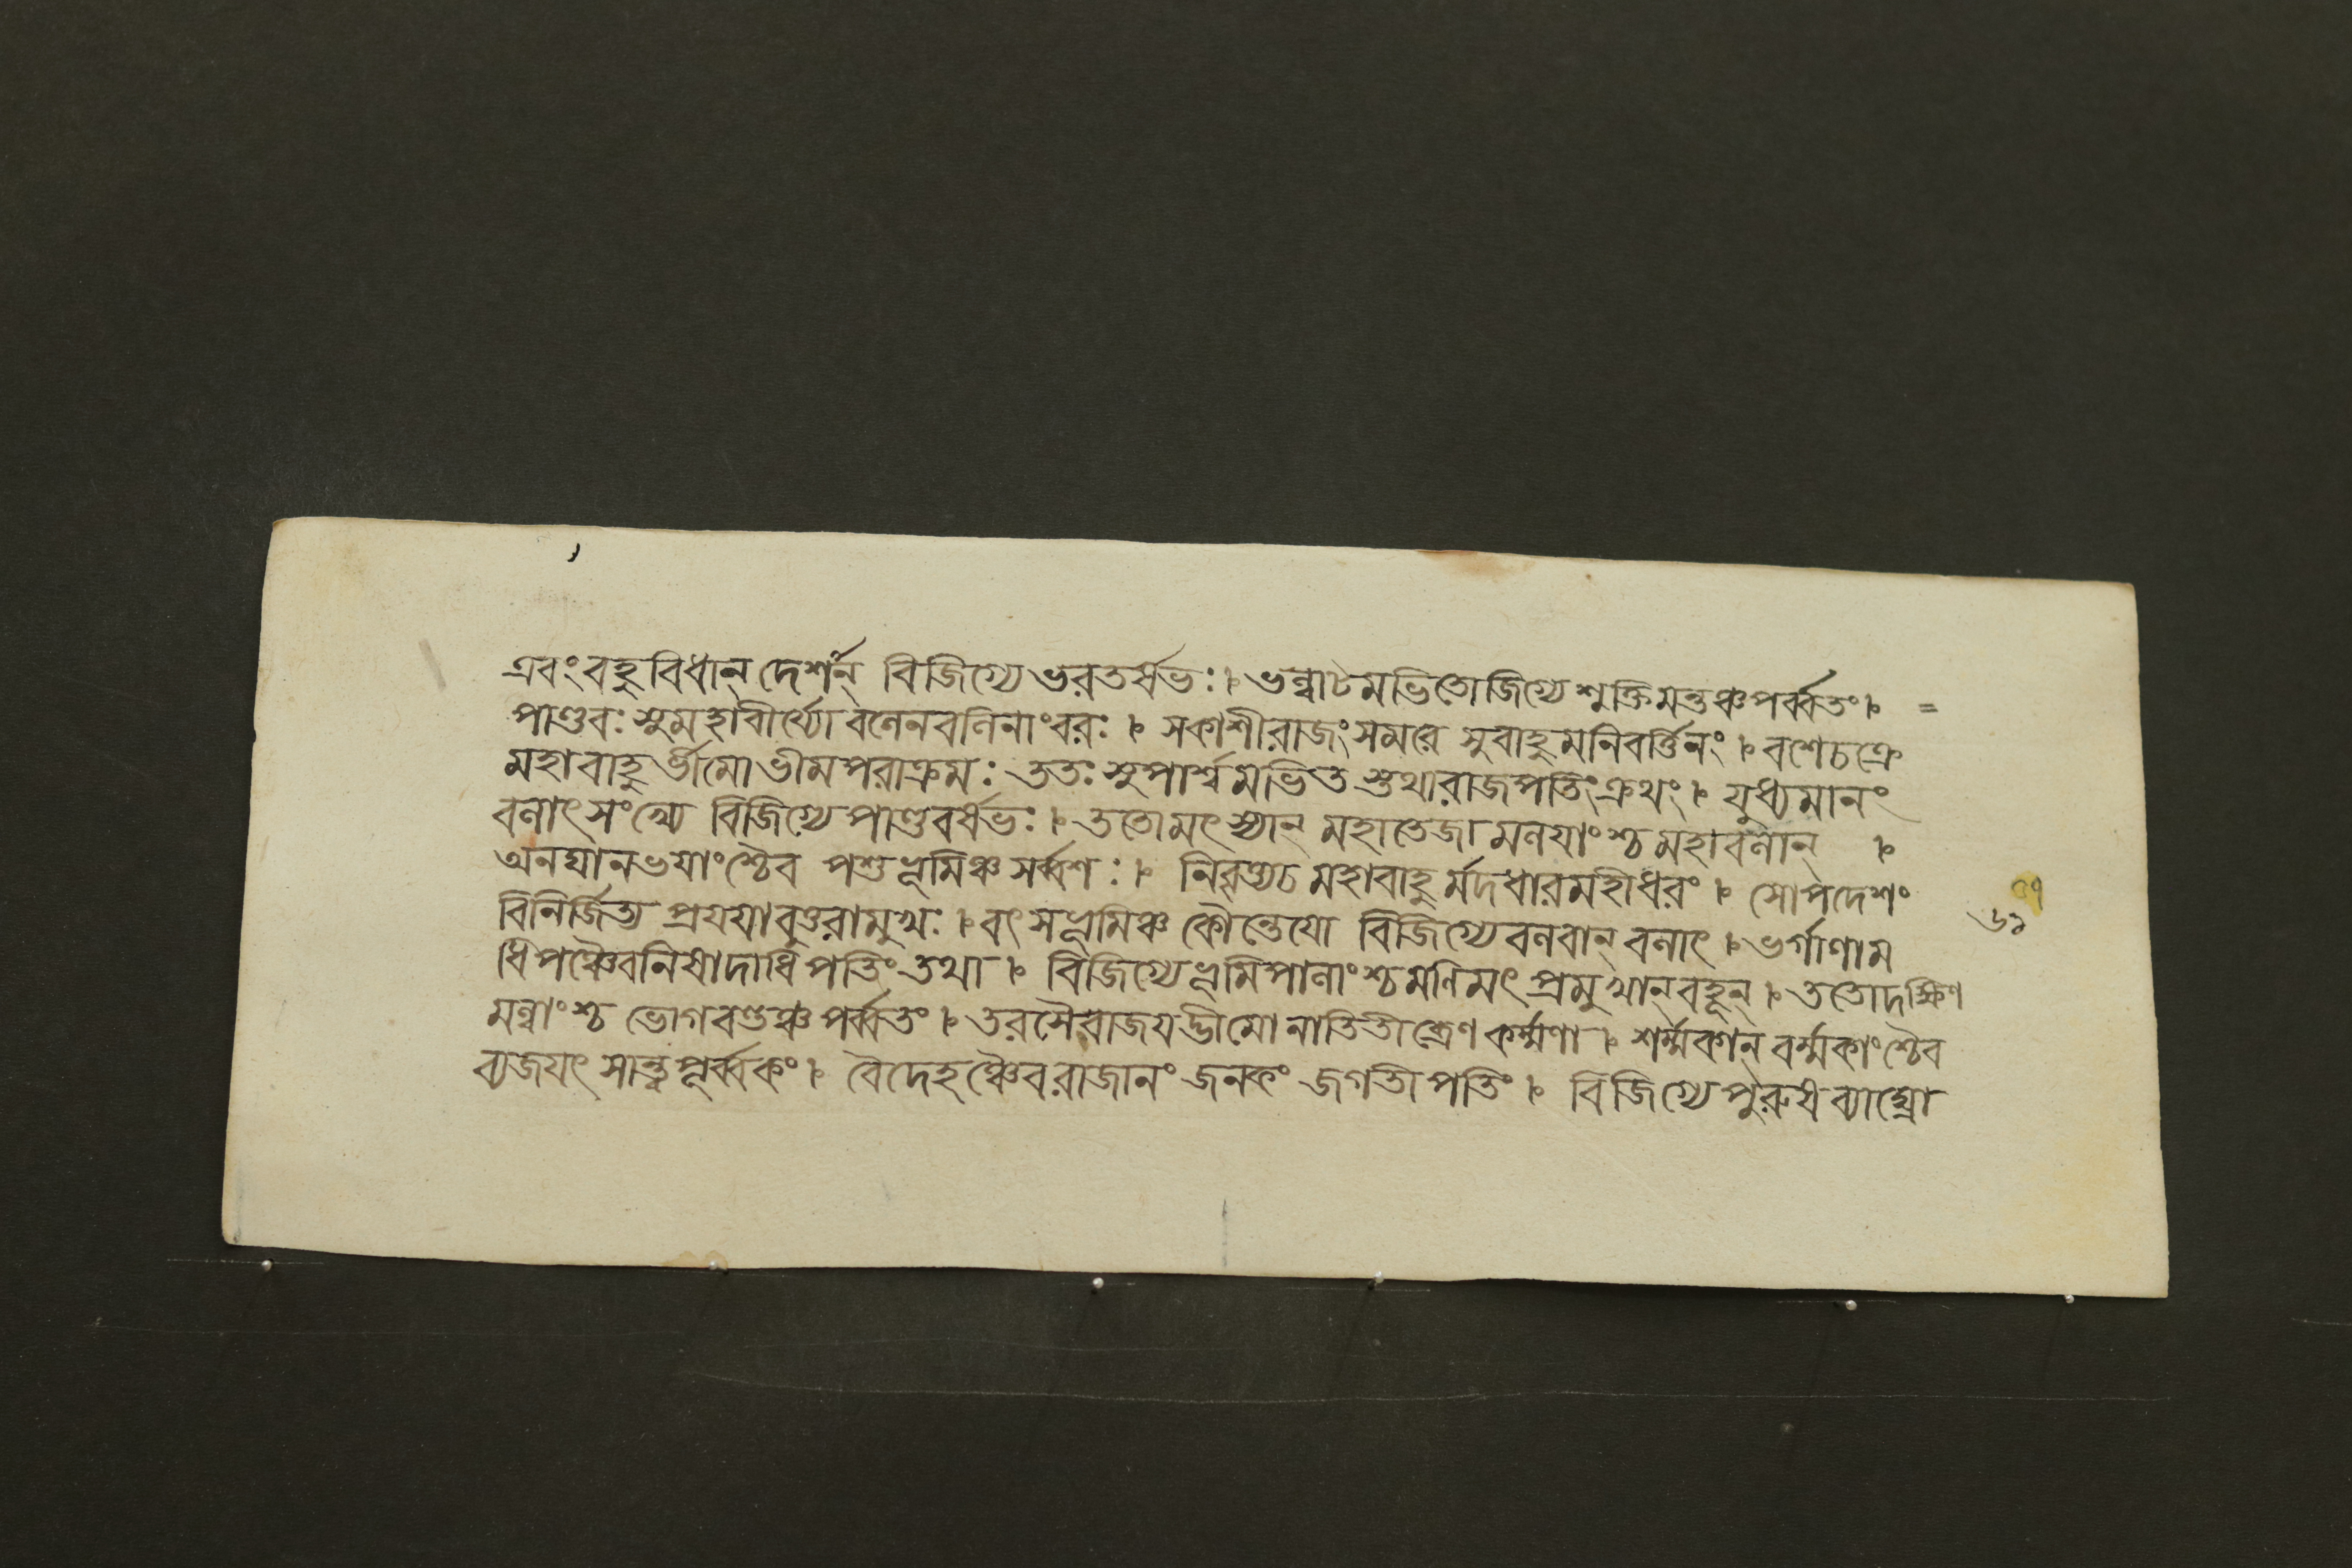 এবং বহুবিধান্ দেশান্ বিজিগ্যে ভরতর্ষভঃ । ভল্লাটমভিতো জিগ্যে শুক্তিমন্তঞ্চ পর্ব্বতং । =
পাণ্ডবঃ সুমহাবীর্য্যো বলেন বলিনাং বরঃ । স কাশীরাজং সমরে সুবাহুমনিবর্ত্তিনং । বশে চক্রে
মহাবাহুর্ভীমো ভীমপরাক্রমঃ ততঃ সুপার্শ্বমভিতস্তথা রাজপতিং ক্রথং । যুধ্যমানং
বলাৎ সংখ্যে বিজিগ্যে পাণ্ডবর্ষভঃ । ততো মৎস্যান্ মহাতেজা মলযাংশ্চ মহাবলান্ ।
অনঘানভযাংশ্চৈব পশুভূমিঞ্চ সর্ব্বশঃ । নিবৃত্য চ মহাবাহুর্মদধারং মহীধরং । সোপদেশং
বিনির্জিত্য প্রযযাবুত্তরামুখঃ । বৎসভূমিঞ্চ কৌন্তেযো বিজিগ্যে বলবান্ বলাৎ । ভর্গাণাম
ধিপঞ্চৈব নিষাদাধিপতিং তথা । বিজিগ্যে ভূমিপালাংশ্চ মণিমৎ প্রমুখান্ বহূন্ । ততো দক্ষিণ
মল্লাংশ্চ ভোগবণ্ডঞ্চ পর্ব্বতং । তরসৈবাজযদ্ভীমো নাতিতীব্রেণ কর্ম্মণা । শর্ম্মকান্ বর্ম্মকাংশ্চৈব
ব্যজযৎ সান্ত্বপূর্ব্বকং । বৈদেহঞ্চৈব রাজানং জনকং জগতীপতিং । বিজিগ্যে পুরুষব্যাঘ্রো